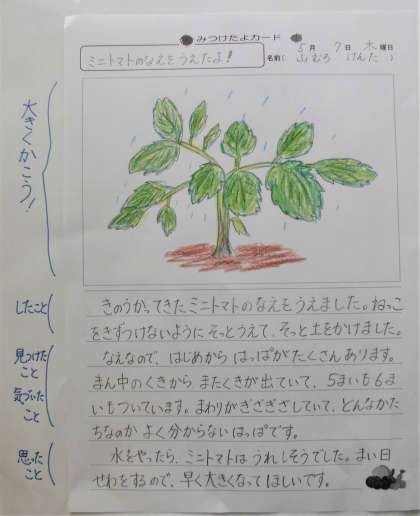 みつけたよカード
ミニトマトのなえをうえたよ!
5月 7日 木曜日
名前( 山むろ けんた )
大きくかこう!
したこと
きのうかってきたミニトマトのなえをうえました。ねっこ
をきずつけないように、そっとうえて、そっと土をかけました。
見つけた
こと
気づいた
こと
なえなので、はじめから はっぱがたくさんあります。
まん中のくきから またくきが出ていて、5まいも6ま
いもついています。まわりがぎざぎざしていて、どんなかた
ちなのか よく分からないはっぱです。
思った
こと
水をやったら、ミニトマトは うれしそうでした。まい日
せわをするので、早く大きくなって ほしいです。